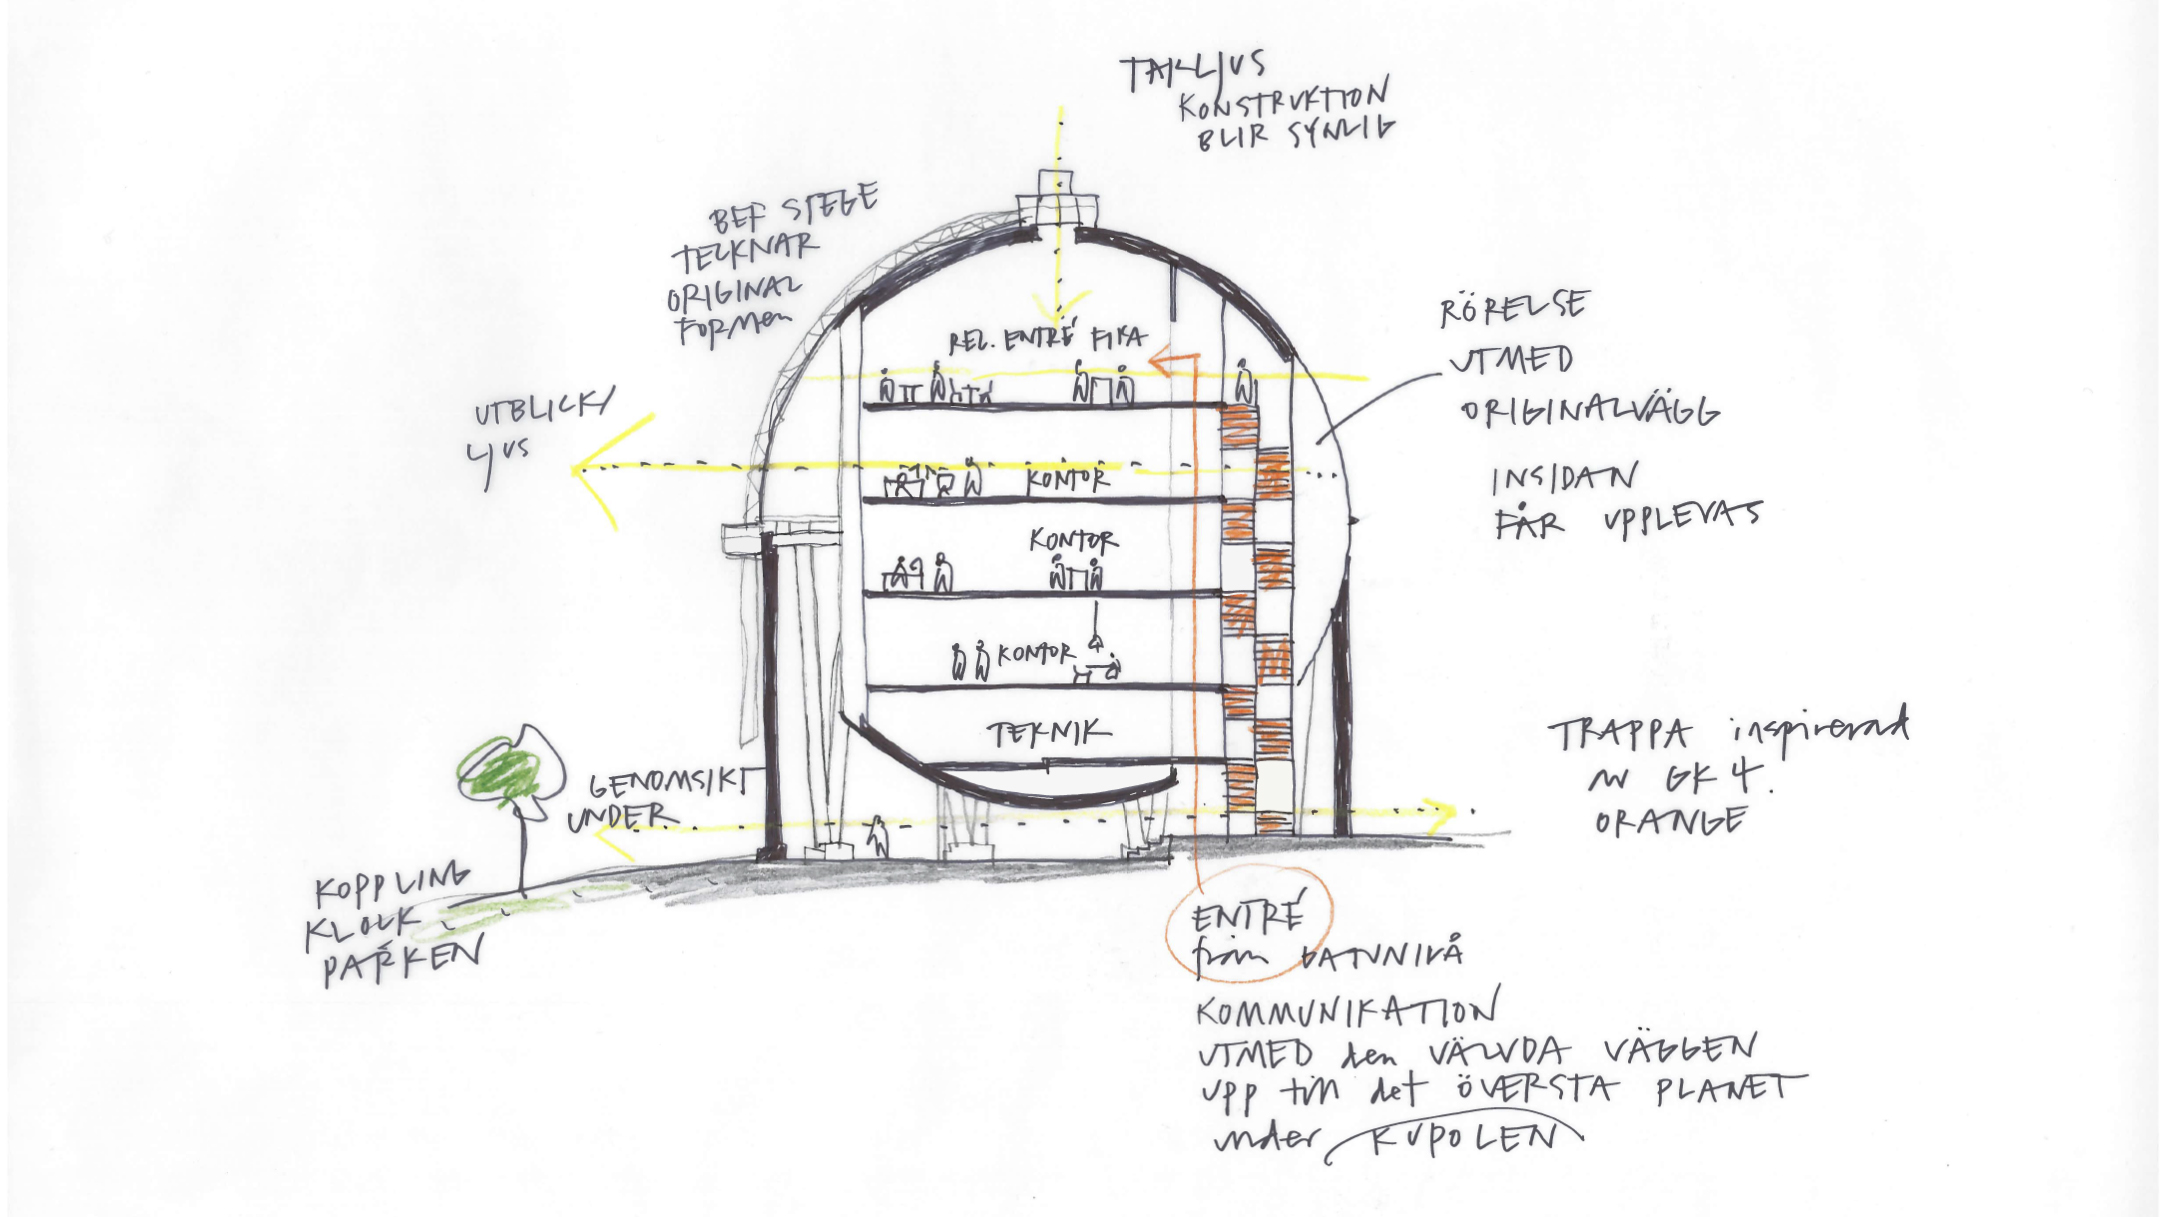 TAKLJUS
KONSTRUKTION
BLIR SYNLIG
BEF STEGE
TECKNAR
ORIGINAL
FORMEN
REC. ENTRÉ FIKA
RÖRELSE
UTMED
ORIGINALVÄGG
INSIDAN
FÅR UPPLEVAS
UTBLICK/
LJUS
KONTOR
KONTOR
KONTOR
TEKNIK
GENOMSIKT
UNDER
TRAPPA inspirerad
av GK 4.
ORANGE
KOPPLING
KLOCK
PARKEN
ENTRÉ
från GATUNIVÅ
KOMMUNIKATION
UTMED den VÄLVDA VÄGGEN
upp till det ÖVERSTA PLANET
under KUPOLEN